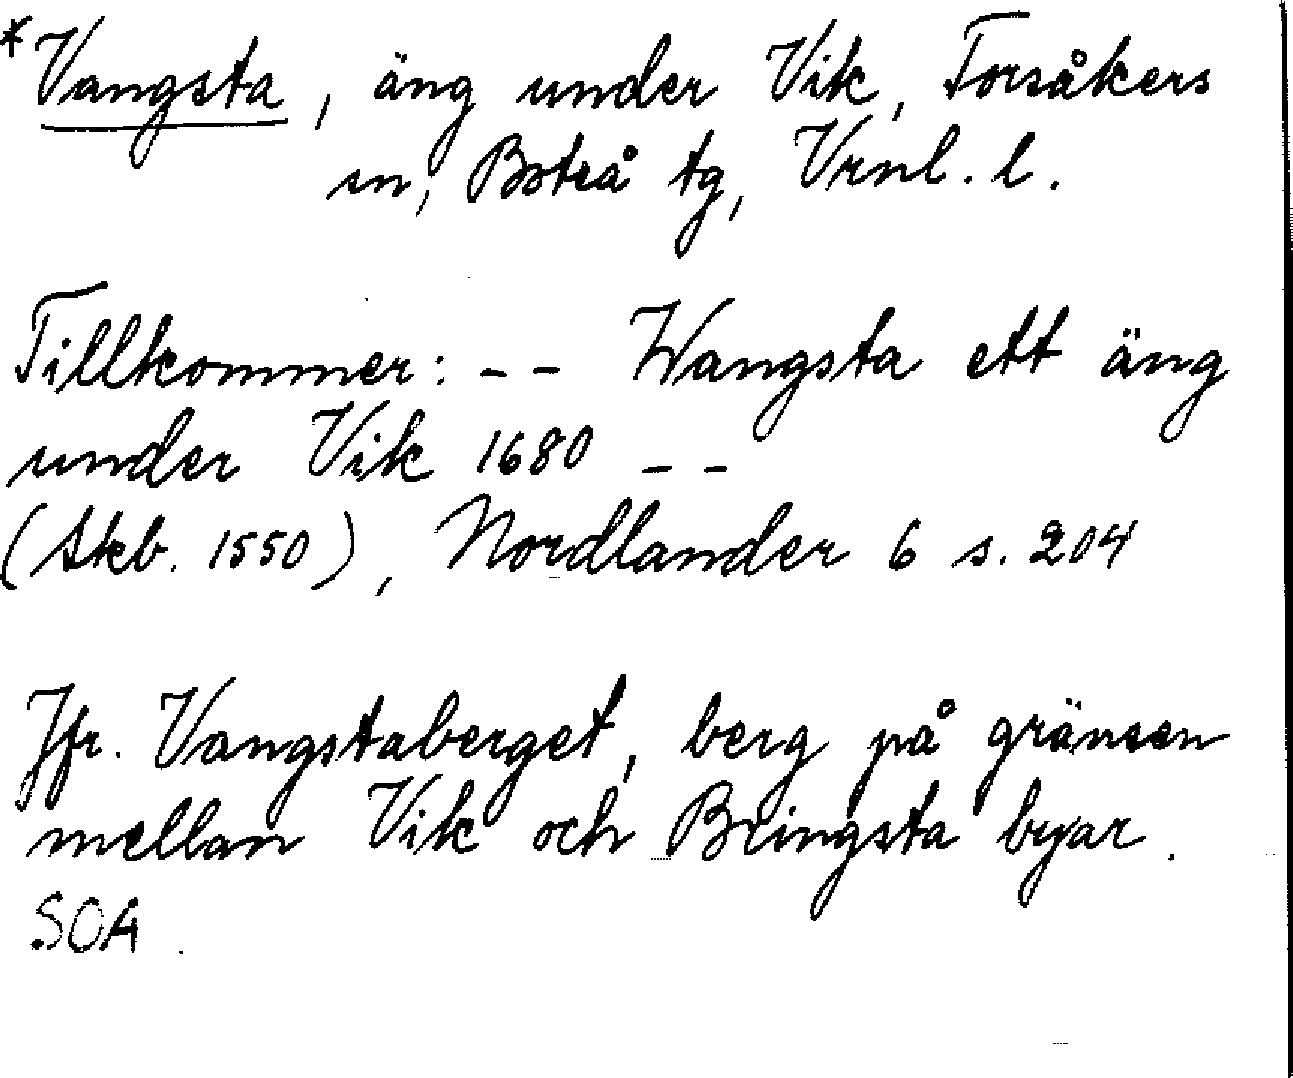 *Vangsta, äng under Vik, Torsåkers
sn, Boteå tg, Vrnl. l.
Tillkommer: -- Wangsta ett äng
under Vik 1680 --
(Skb. 1550), Nordlander 6 s. 204
Jfr. Vangstaberget, berg på gränsen
mellan Vik och Bringsta byar.
SOA.